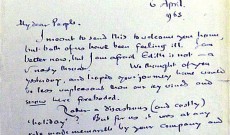 6 April,
1963
My dear People.
I meant to send this to welcome you home,
but both of us have been feeling ill. I am
better now, but I am afraid Edith is not – a
nasty throat. We thought of you
yesterday, and hoped your journey home would
be less unpleasant than our icy winds and
snow have foreboded.
a disastrous (and costly)
'holiday'! But for us it was at any
rate made memorable by your company and